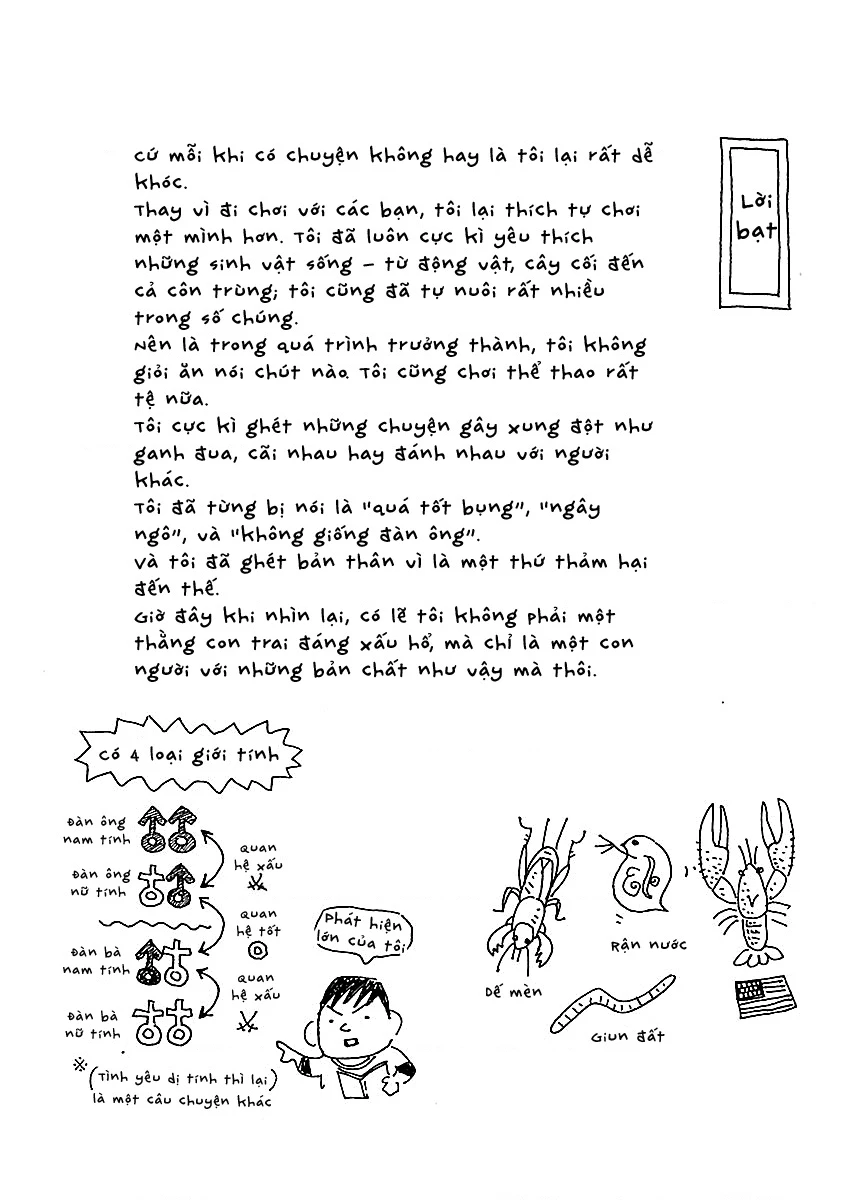 Lời
bạt
Cứ mỗi khi có chuyện không hay là tôi lại rất dễ
khóc.
Thay vì đi chơi với các bạn, tôi lại thích tự chơi
một mình hơn. Tôi đã luôn cực kì yêu thích
những sinh vật sống – từ động vật, cây cối đến
cả côn trùng; tôi cũng đã tự nuôi rất nhiều
trong số chúng.
Nên là trong quá trình trưởng thành, tôi không
giỏi ăn nói chút nào. Tôi cũng chơi thể thao rất
tệ nữa.
Tôi cực kì ghét những chuyện gây xung đột như
ganh đua, cãi nhau hay đánh nhau với người
khác.
Tôi đã từng bị nói là "quá tốt bụng", "ngây
ngô", và "không giống đàn ông".
Và tôi đã ghét bản thân vì là một thứ thảm hại
đến thế.
Giờ đây khi nhìn lại, có lẽ tôi không phải một
thằng con trai đáng xấu hổ, mà chỉ là một con
người với những bản chất như vậy mà thôi.
Có 4 loại giới tính
Đàn ông
nam tính
Đàn ông
nữ tính
Đàn bà
nam tính
Đàn bà
nữ tính
Quan
hệ xấu
Quan
hệ tốt
Quan
hệ xấu
※(Tình yêu dị tính thì lại)
là một câu chuyện khác
Phát hiện
lớn của tôi
Dế mèn
Rận nước
Giun đất